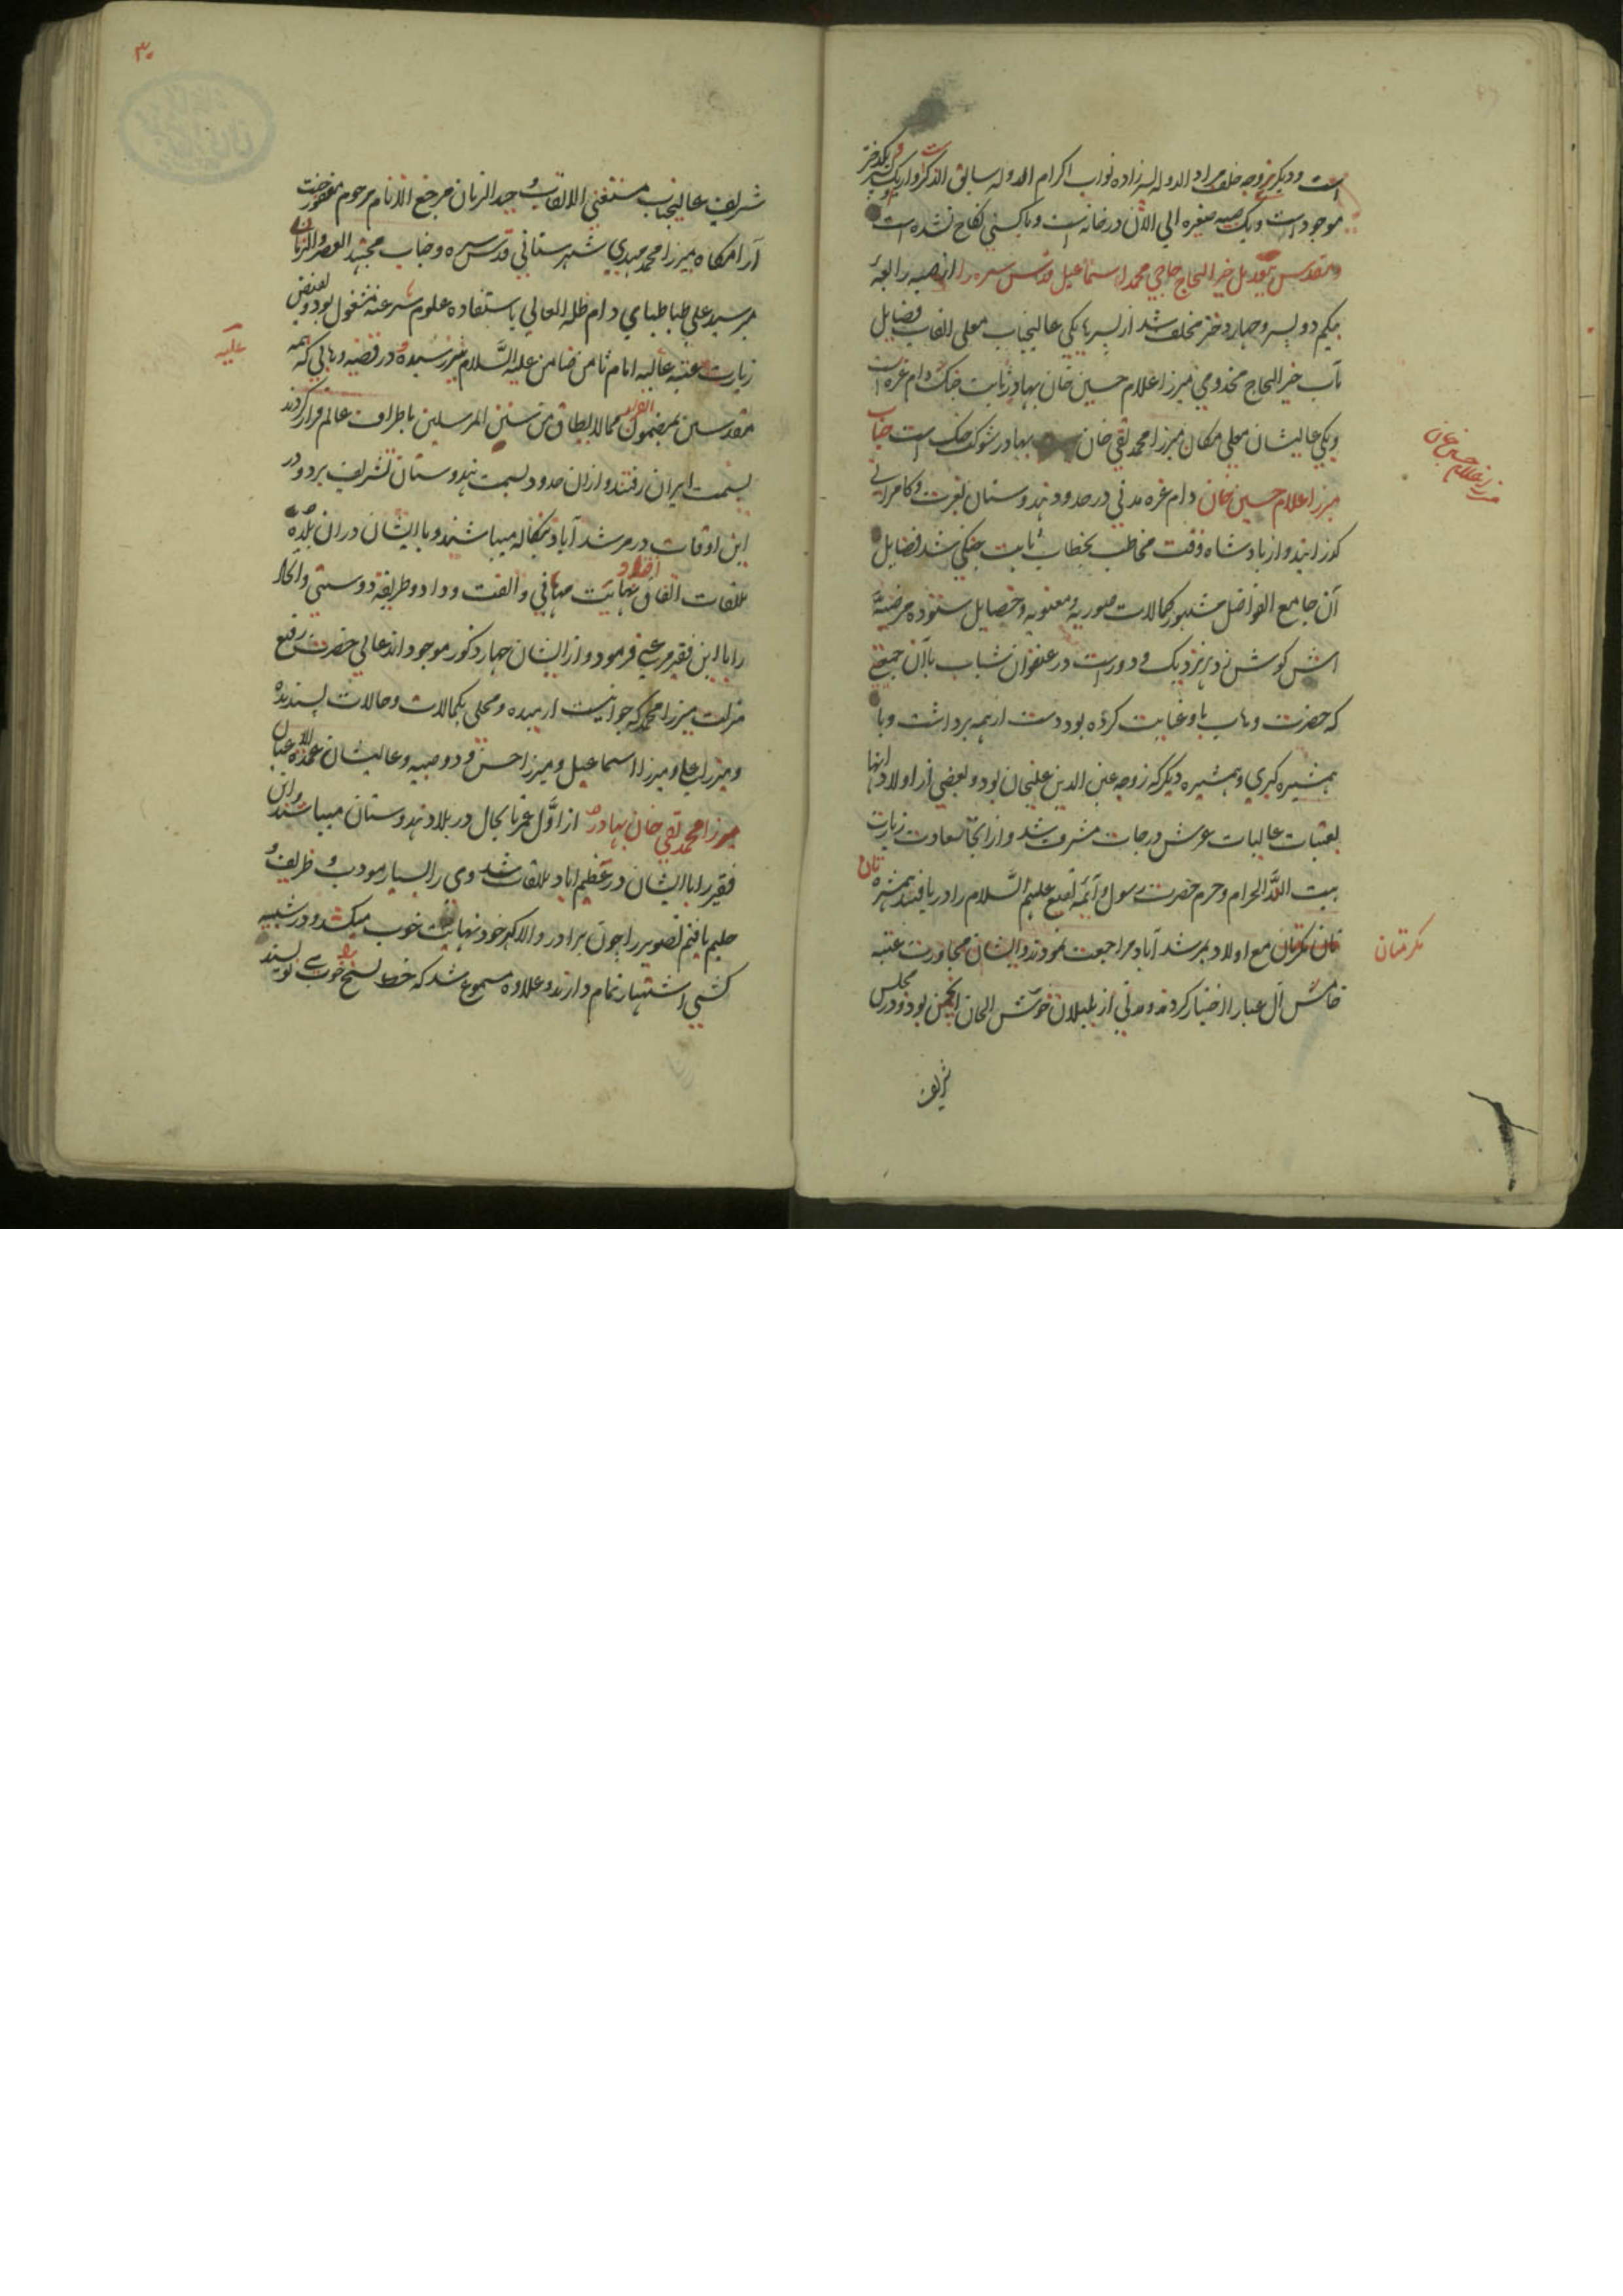 است و دیگر زوجه خلف مراد الدوله پسرزاده نواب اکرام الدوله سابق الذکر و از یک پسر و یکدختر
موجود است و یک صبیه صغیره الی الآن در خانه است و با کسی نکاح نشده است
و مقدس بیعدیل خیر الحاج حاجی محمد اسماعیل قدس سره را از صبیه رابعه
بیکم دو پسر و چهار دختر مخلف شد از پسرها یکی عالیجناب معلی القاب فضایل
مآب خیر الحاج مخدومی میرزا غلام حسین خان بهادر ثابت جنک دام عزه است
و یکی عالیشان معلی مکان میرزا محمد تقی خان بهادر شوکت جنک است جناب
میرزا غلام حسین خان دام عزه مدتی در حدود هندوستان بعزت و کامرانی
کوزانید و از پادشاه وقت مخاطب بخطاب ثابت جنکی شد فضایل
آن جامع الفواضل مشهور کمالات صوریه و معنویه و خصایل ستوده مرضیه
اش کوش زد هر نزدیک و دور است در عنفوان شباب باآن جمعیتی
که حضرت وهاب باو عنایت کرده بود دست از همه برداشت و با
همشیره کبری و همشیره دیکر که زوجه عین الدین علیخان بود و بعضی از اولاد آنها
بعتبات عالیات عرش درجات مشرف شد و از آنجا بسعادت زیارت
بیت الله الحرام و حرم حضرت رسول و آئمه بقیع علیهم السلام را دریافتند همشیره تان
مکرمتان مع اولاد بمرشد آباد مراجعت نمودند و ایشان مجاورت عتبه
خامس آل عبا را اختیار کردند و مدتی از بلبلان خوش الحان انجمن بود و در مجلس
شریف
میرزا غلام حسین خان
مکرمتان
۳۰
شریف عالیجناب مستغنی الالقاب وحید الزمان مرجع الانام مرحوم مغفور جنت
آرامکاه میرزا محمد مهدی شهرستانی قدس سره و جناب مجتهد العصر و الزمان
میر سید علی طباطبای دام ظله العالی باستفاده علوم شرعیه مشغول بود و بفیض
زیارت عتبه عالیه امام ثامن ضامن علیه السلام نیز رسیده و در قضیه وهابی که همه
علیه
مقدسین بمضمون الفرار مما لا یطاق من سنن المرسلین باطراف عالم فرار کردند
بسمت ایران رفتند و از آن حدود بسمت هندوستان تشریف برد و در
این اوقات در مرشد آباد بنکاله میباشند و با ایشان در آن بلده
ملاقات اتفاق افتاد نهایت مهربانی و الفت و وداد و طریقه دوستی و اتحاد
را با این فقیر مرعی فرمود و از ایشان چهار ذکور موجود اند عالی حضرت رفیع
منزلت میرزا محمد که جوانیست ارمیده و محلی بکمالات و حالات پسندیده
و میرزا علی و میرزا اسماعیل و میرزا حسن و دو صبیه و عالیشان عمدة الاعیان
میرزا محمد تقی خان بهادر از اول عمر تا بحال در بلاد هندوستان میباشند و این
فقیر را با ایشان در عظیم اباد ملاقات شد وی را بسیار مودب و ظریف و
حلیم یافتم تصویر را چون برادر والا کهر خود نهایت خوب میکشد و در شبیه
کشی اشتهار تمام دارند و علاوه مسموع شد که خط نسخ را خوب می نویسند